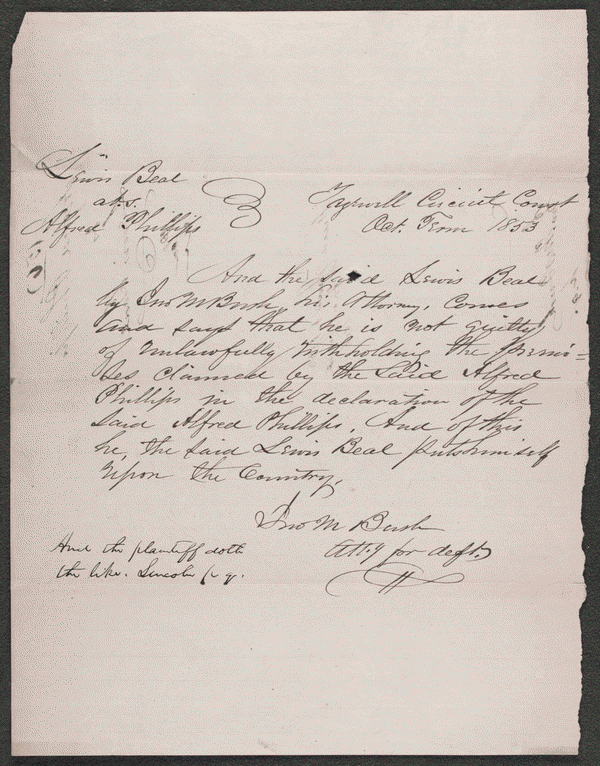 Lewis Beal
ats.
Alfred Phillips
Tazwell Circuit Court
Oct. Term 1853
And the said Lewis Beal
by Jno M Bush, his Attorny, comes
and says that he is not guilty
of unlawfully withholding the premi=
ses claimed by the said Alfred
Phillips in the declaration of the
said Alfred Phillips. And of this
he, the said Lewis Beal puts himself
upon the Country,
Jno M Bush
Atty for deft.
And the plaintiff doth
the like. Lincoln p. q.